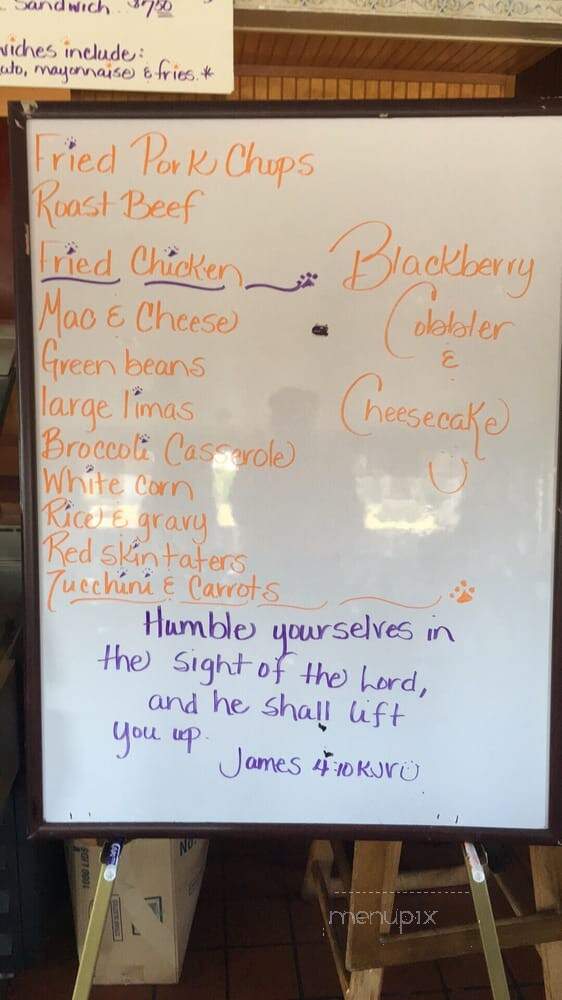 Sandwich. $7.50
wiches include:
ato, mayonnaise & fries.*
Fried Pork Chops
Roast Beef
Fried Chicken
Mac & Cheese
Green beans
large limas
Broccoli Casserole
White corn
Rice & gravy
Red skin taters
Zucchini & Carrots
Blackberry
Cobbler
&
Cheesecake
Humble yourselves in
the sight of the Lord,
and he shall lift
you up.
James 4:10 KJV
menupix